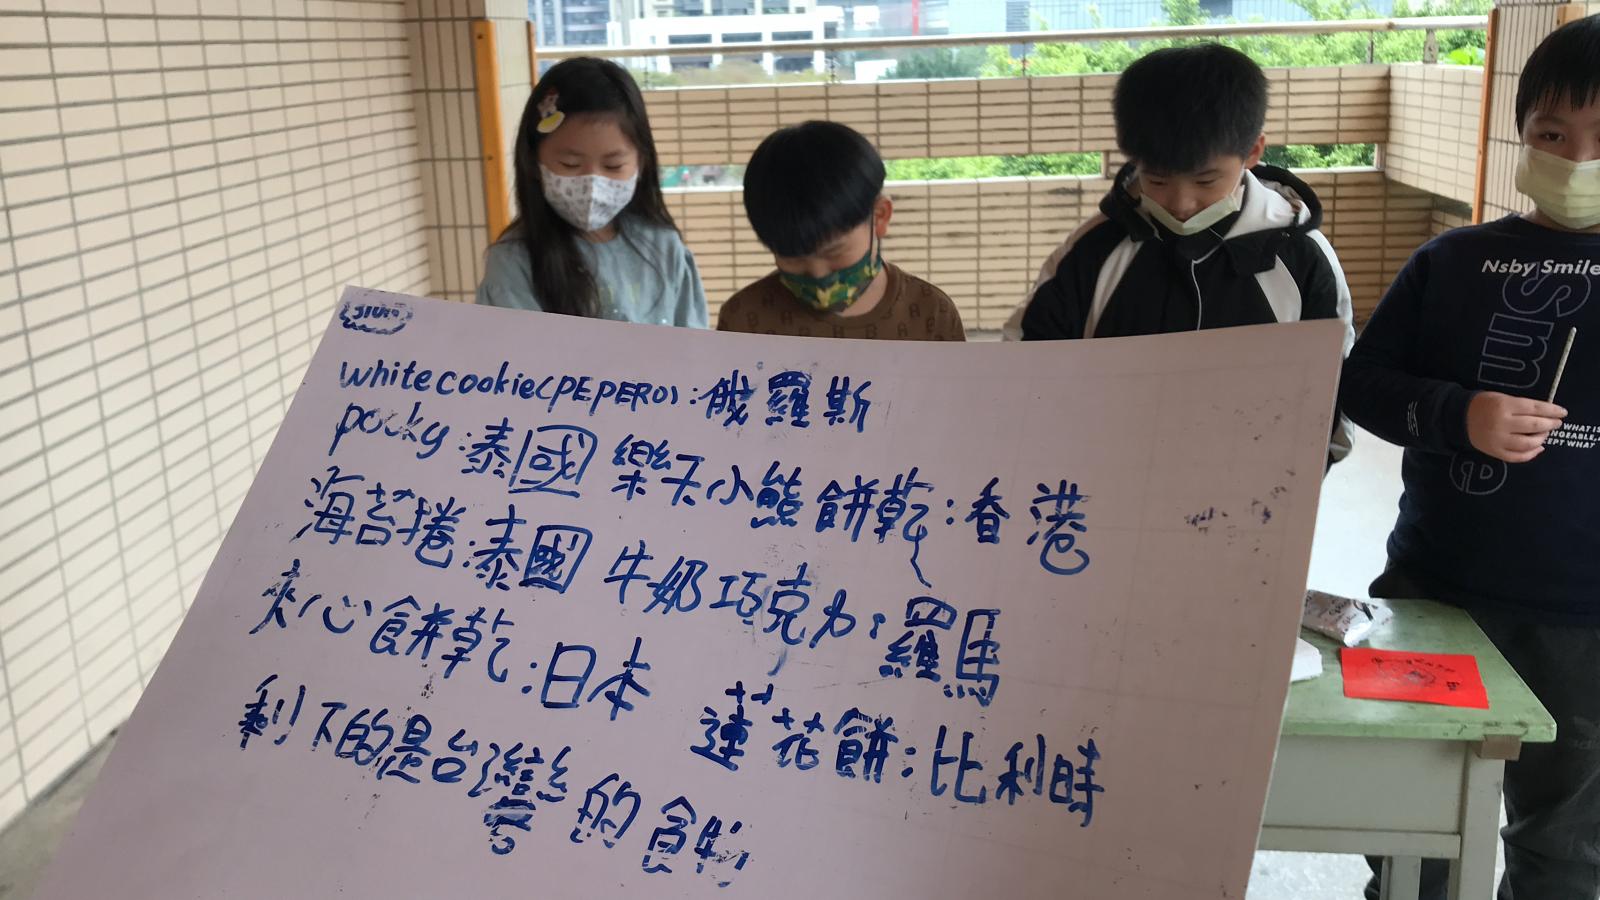 white cookie(PEPERO):俄羅斯
pocky:泰國 樂天小熊餅乾:香港
海苔捲:泰國 牛奶巧克力:羅馬
夾心餅乾:日本 蓮花餅:比利時
剩下的是台灣的食物
Nsby Smile
Smile